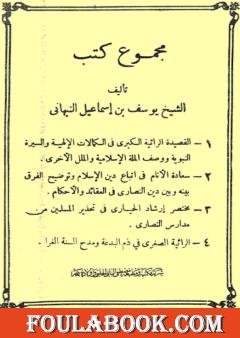 مجموع كتب
تأليف
الشيخ يوسف بن إسماعيل النبهانى
١ – القصيدة الرائية الكبرى فى الكمالات الإلهية والسيرة
النبوية ووصف الملة الإسلامية والملل الأخرى.
٢ – سعادة الأنام فى اتباع دين الإسلام وتوضيح الفرق
بينه وبين دين النصارى فى العقائد والأحكام.
٣ – مختصر إرشاد الحيارى فى تحذير المسلمين من
مدارس النصارى.
٤ – الرائية الصغرى فى ذم البدعة ومدح السنة الغرا.
FOULABOOK.COM